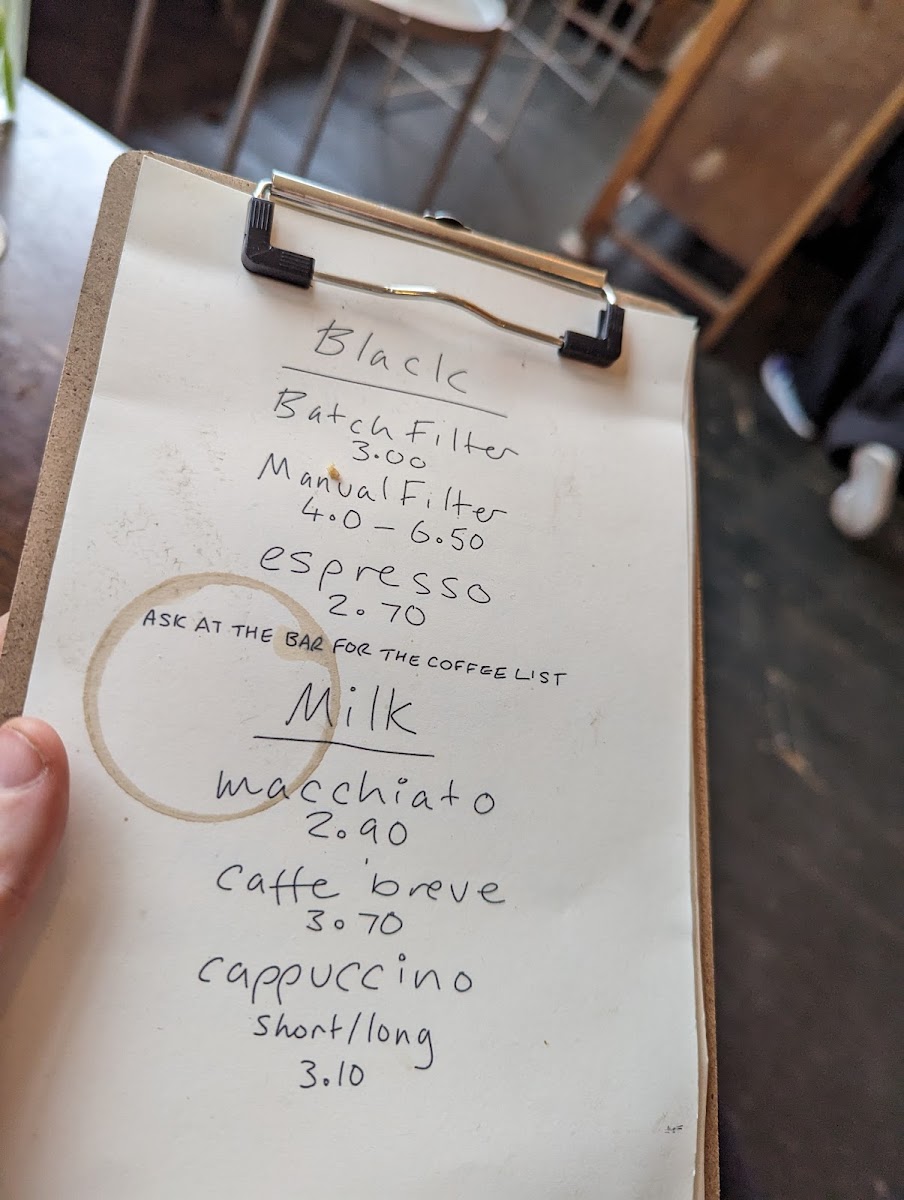 Black
Batch Filter
3.00
Manual Filter
4.0 - 6.50
espresso
2.70
ASK AT THE BAR FOR THE COFFEE LIST
Milk
macchiato
2.90
caffe breve
3.70
cappuccino
short/long
3.10